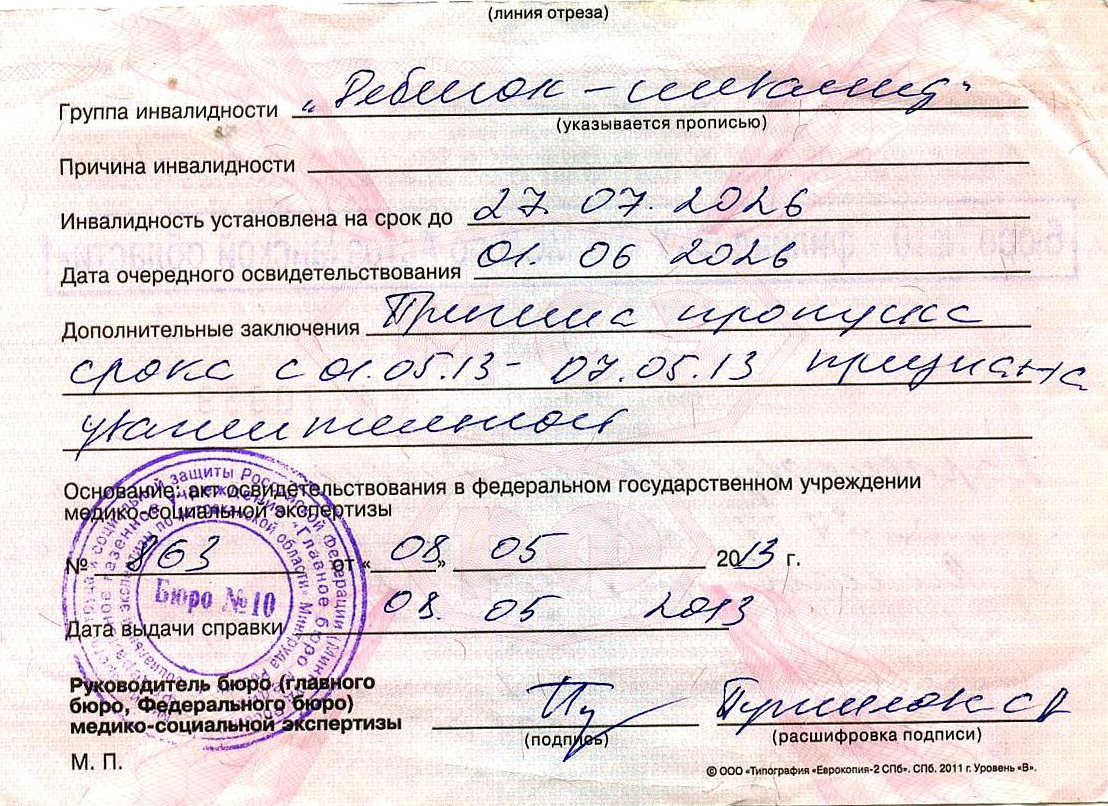 (линия отреза)
Группа инвалидности "Ребенок - инвалид"
(указывается прописью)
Причина инвалидности
Инвалидность установлена на срок до 27. 07. 2026
Дата очередного освидетельствования 01. 06 2026
Дополнительные заключения Причина пропуска
срока с 01.05.13 - 07.05.13 признана
уважительной
Основание: акт освидетельствования в федеральном государственном учреждении
медико-социальной экспертизы
№ 863 от «08» 05 2013 г.
Бюро №10
Дата выдачи справки 08. 05 2013
Руководитель бюро (главного
бюро, Федерального бюро)
медико-социальной экспертизы
(подпись)
(расшифровка подписи)
М. П.
© ООО «Типография «Еврокопия-2 СПб». СПб. 2011 г. Уровень «В».